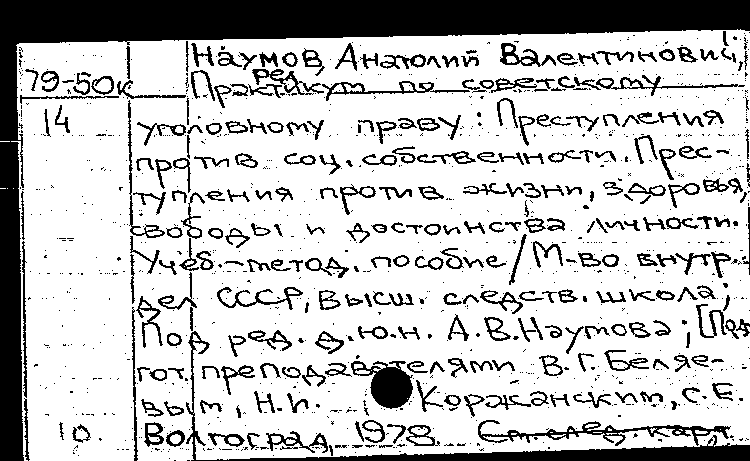 Наумов, Анатолий Валентинович,
ред.
79-50к Практикум по советскому
14 уголовному праву: Преступления
против соц. собственности. Прес-
тупления против жизни, здоровья,
свободы и достоинства личности.
Учеб.-метод. пособие / М-во внутр.
дел СССР, Высш. следств. школа;
Под ред. д.ю.н. А.В. Наумова; [Под-
гот. преподавателями В.Г. Беляе-
вым, Н.И. Коржанским, С.Е.
10. Волгоград, 1978. См. след. карт